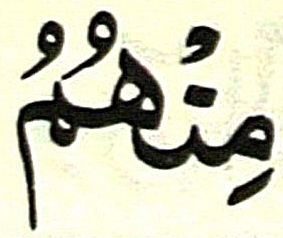 مِنْهُمُ